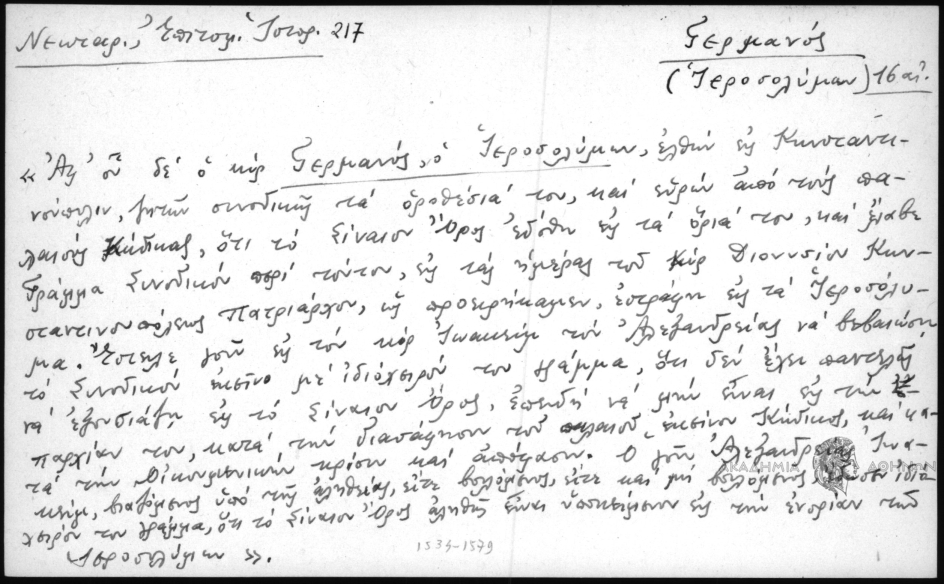 Νεκταρ., Ἐπιτομ. Ἱστορ. 217
Γερμανός
(Ἱεροσολύμων) 16 αἰ.
« Ἀφ' οὗ δέ ὁ κύρ Γερμανός, ὁ Ἱεροσολύμων, ἐλθών εἰς Κωνσταντι-
νούπολιν, ζητῶν συνοδικῶς τά ὁροθέσιά του, καί εὑρών ἀπό τούς πα-
λαιούς Κώδικας, ὅτι τό Σίναιον Ὄρος ἐδόθη εἰς τά ὅριά του, καί ἔλαβε
Γράμμα Συνοδικόν περί τούτου, εἰς τάς ἡμέρας τοῦ κύρ Διονυσίου Κων-
σταντινουπόλεως Πατριάρχου, ὡς προειρήκαμεν, ἐστράφη εἰς τά Ἱεροσόλυ-
μα. Ἔστειλε γοῦν εἰς τόν κύρ Ἰωακείμ τόν Ἀλεξανδρείας νά βεβαιώσῃ
τό Συνοδικόν ἐκεῖνο μέ ἰδιόχειρόν του γράμμα, ὅτι δέν ἔχει παντελῶς
νά ἐξουσιάζῃ εἰς τό Σίναιον Ὄρος, ἐπειδή νά μήν εἶναι εἰς τήν ἐ-
παρχίαν του, κατά τήν διασάφησιν τοῦ παλαιοῦ ἐκείνου Κώδικος, καί κα-
τά τήν Οἰκουμενικήν κρίσιν καί ἀπόφασιν. Ὁ γοῦν Ἀλεξανδρείας Ἰωα-
κείμ, βιαζόμενος ὑπό τῆς ἀληθείας, εἴτε βουλόμενος, εἴτε καί μή βουλόμενος, ἰδιό-
χειρόν του γράμμα, ὅτι τό Σίναιον Ὄρος ἀληθῶς εἶναι ὑποκείμενον εἰς τήν ἐνορίαν τῶν
Ἱεροσολύμων ».
1534-1579
ΑΚΑΔΗΜΙΑ ΑΘΗΝΩΝ